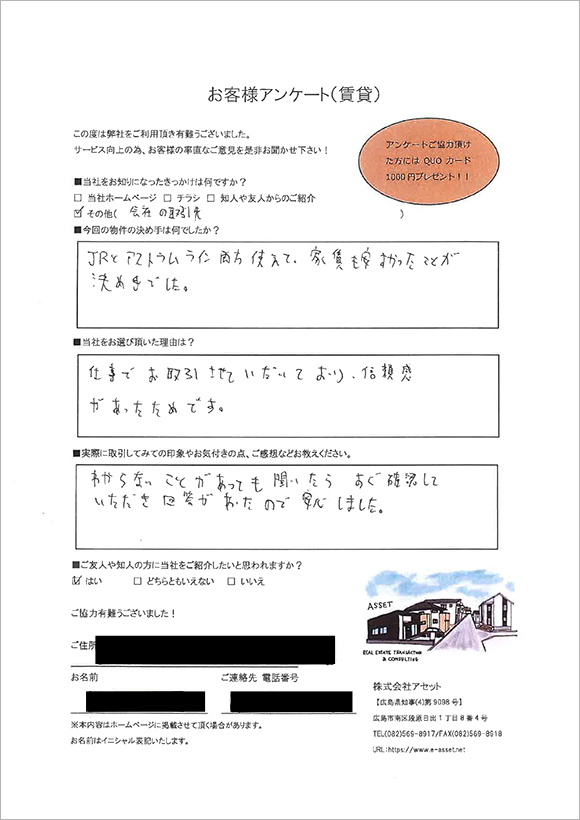 お客様アンケート(賃貸)
この度は弊社をご利用頂き有難うございました。
サービス向上の為、お客様の率直なご意見を是非お聞かせ下さい!
アンケートご協力頂け
た方には QUO カード
1000円プレゼント!!
■当社をお知りになったきっかけは何ですか?
□ 当社ホームページ □ チラシ □ 知人や友人からのご紹介
☑ その他( 会社の取引先 )
■今回の物件の決め手は何でしたか?
JRとアストラムライン両方使えて、家賃も安かったことが
決め手でした。
■当社をお選び頂いた理由は?
仕事でお取引させていただいており、信頼感
があったためです。
■実際に取引してみての印象やお気付きの点、ご感想などお教えください。
わからないことがあっても聞いたらすぐ確認して
いただき回答があったので安心しました。
■ご友人や知人の方に当社をご紹介したいと思われますか?
☑ はい □ どちらともいえない □ いいえ
ご協力有難うございました!
ご住所
お名前 ご連絡先 電話番号
※本内容はホームページに掲載させて頂く場合があります。
お名前はイニシャル表記いたします。
ASSET
REAL ESTATE TRANSACTION
& CONSULTING
株式会社アセット
【広島県知事(4)第9098号】
広島市南区段原日出1丁目8番4号
TEL(082)569-8917/FAX(082)569-8918
URL:https://www.e-asset.net